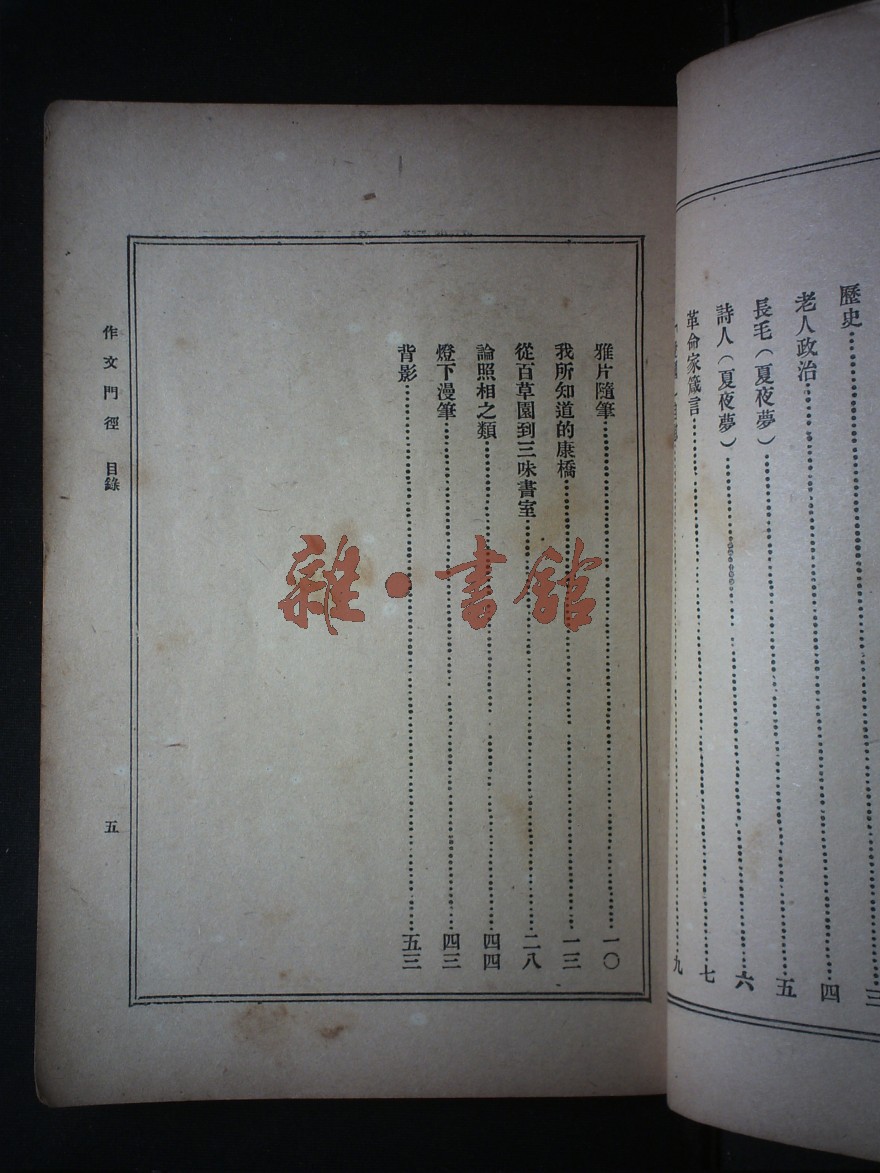 歷史……三
老人政治……四
長毛（夏夜夢）……五
詩人（夏夜夢）……六
革命家箴言……七
九
雅片隨筆……一〇
我所知道的康橋……一三
從百草園到三味書室……二八
論照相之類……四四
燈下漫筆……四三
背影……五三
作文門徑 目錄
五
雜·書館